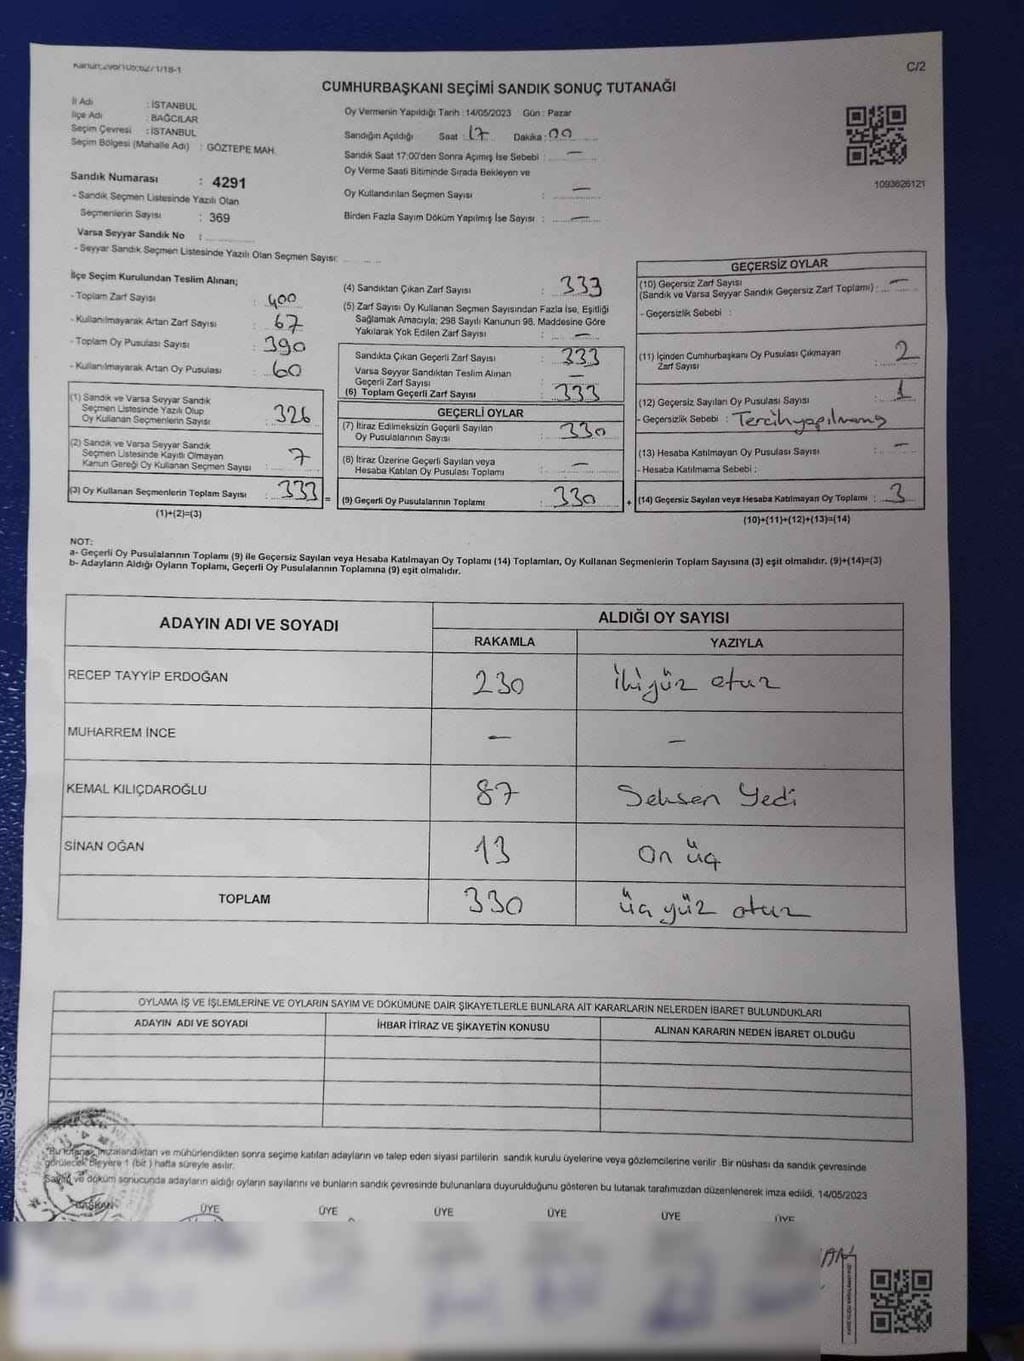 Kanun:298/105:6271/18-1
C/2
CUMHURBAŞKANI SEÇİMİ SANDIK SONUÇ TUTANAĞI
İl Adı : İSTANBUL
İlçe Adı : BAĞCILAR
Seçim Çevresi : İSTANBUL
Seçim Bölgesi (Mahalle Adı) : GÖZTEPE MAH.
Sandık Numarası : 4291
- Sandık Seçmen Listesinde Yazılı Olan
Seçmenlerin Sayısı : 369
Varsa Seyyar Sandık No :
- Seyyar Sandık Seçmen Listesinde Yazılı Olan Seçmen Sayısı:
Oy Vermenin Yapıldığı Tarih : 14/05/2023 Gün : Pazar
Sandığın Açıldığı Saat : 17 Dakika : 00
Sandık Saat 17:00'den Sonra Açımış İse Sebebi : —
Oy Verme Saati Bitiminde Sırada Bekleyen ve
Oy Kullandırılan Seçmen Sayısı : —
Birden Fazla Sayım Döküm Yapılmış İse Sayısı : —
1093626121
İlçe Seçim Kurulundan Teslim Alınan;
- Toplam Zarf Sayısı : 400
- Kullanılmayarak Artan Zarf Sayısı : 67
- Toplam Oy Pusulası Sayısı : 390
- Kullanılmayarak Artan Oy Pusulası : 60
(1) Sandık ve Varsa Seyyar Sandık
Seçmen Listesinde Yazılı Olup
Oy Kullanan Seçmenlerin Sayısı : 326
(2) Sandık ve Varsa Seyyar Sandık
Seçmen Listesinde Kayıtlı Olmayan
Kanun Gereği Oy Kullanan Seçmen Sayısı : 7
(3) Oy Kullanan Seçmenlerin Toplam Sayısı : 333 =
(1)+(2)=(3)
(4) Sandıktan Çıkan Zarf Sayısı : 333
(5) Zarf Sayısı Oy Kullanan Seçmen Sayısından Fazla İse, Eşitliği
Sağlamak Amacıyla; 298 Sayılı Kanunun 98. Maddesine Göre
Yakılarak Yok Edilen Zarf Sayısı : —
Sandıkta Çıkan Geçerli Zarf Sayısı : 333
Varsa Seyyar Sandıktan Teslim Alınan
Geçerli Zarf Sayısı : —
(6) Toplam Geçerli Zarf Sayısı : 333
GEÇERLİ OYLAR
(7) İtiraz Edilmeksizin Geçerli Sayılan
Oy Pusulalarının Sayısı : 330
(8) İtiraz Üzerine Geçerli Sayılan veya
Hesaba Katılan Oy Pusulası Toplamı : —
(9) Geçerli Oy Pusulalarının Toplamı : 330 +
GEÇERSİZ OYLAR
(10) Geçersiz Zarf Sayısı
(Sandık ve Varsa Seyyar Sandık Geçersiz Zarf Toplamı) : —
- Geçersizlik Sebebi :
(11) İçinden Cumhurbaşkanı Oy Pusulası Çıkmayan
Zarf Sayısı : 2
(12) Geçersiz Sayılan Oy Pusulası Sayısı : 1
- Geçersizlik Sebebi : Tercih yapılmamış
(13) Hesaba Katılmayan Oy Pusulası Sayısı : —
- Hesaba Katılmama Sebebi :
(14) Geçersiz Sayılan veya Hesaba Katılmayan Oy Toplamı : 3
(10)+(11)+(12)+(13)=(14)
NOT:
a- Geçerli Oy Pusulalarının Toplamı (9) ile Geçersiz Sayılan veya Hesaba Katılmayan Oy Toplamı (14) Toplamları, Oy Kullanan Seçmenlerin Toplam Sayısına (3) eşit olmalıdır. (9)+(14)=(3)
b- Adayların Aldığı Oyların Toplamı, Geçerli Oy Pusulalarının Toplamına (9) eşit olmalıdır.
ADAYIN ADI VE SOYADI
ALDIĞI OY SAYISI
RAKAMLA YAZIYLA
RECEP TAYYİP ERDOĞAN 230 ikiyüz otuz
MUHARREM İNCE — —
KEMAL KILIÇDAROĞLU 87 Seksen Yedi
SİNAN OĞAN 13 On üç
TOPLAM 330 üç yüz otuz
OYLAMA İŞ VE İŞLEMLERİNE VE OYLARIN SAYIM VE DÖKÜMÜNE DAİR ŞİKAYETLERLE BUNLARA AİT KARARLARIN NELERDEN İBARET BULUNDUKLARI
ADAYIN ADI VE SOYADI İHBAR İTİRAZ VE ŞİKAYETİN KONUSU ALINAN KARARIN NEDEN İBARET OLDUĞU
Bu tutanak imzalandıktan ve mühürlendikten sonra seçime katılan adayların ve talep eden siyasi partilerin sandık kurulu üyelerine veya gözlemcilerine verilir. Bir nüshası da sandık çevresinde
görülecek bir yere 1 (bir) hafta süreyle asılır.
Sayım ve döküm sonucunda adayların aldığı oyların sayılarını ve bunların sandık çevresinde bulunanlara duyurulduğunu gösteren bu tutanak tarafımızdan düzenlenerek imza edildi. 14/05/2023
BAŞKAN ÜYE ÜYE ÜYE ÜYE ÜYE ÜYE